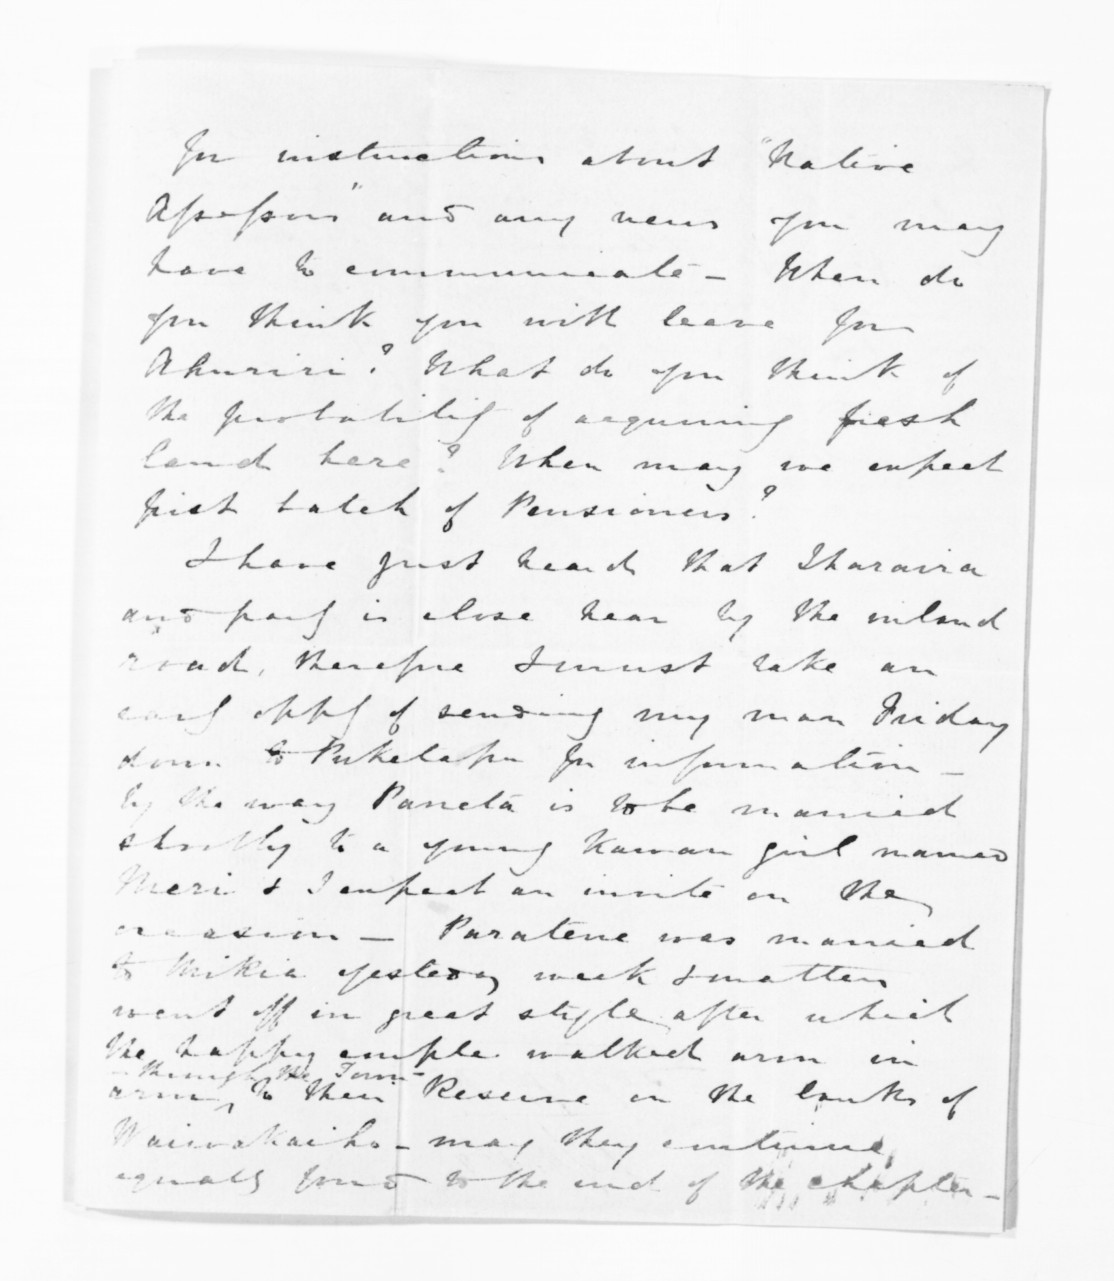 for instructions about "Native
Assessors" and any news you may
have to communicate – When do
you think you will leave for
Ahuriri? What do you think of
the probability of acquiring fresh
land here? When may we expect
first batch of Pensioners?
I have just heard that Iharaira
and party is close near by the inland
road, therefore I must take an
early oppy of sending my man Friday
down to Puketapu for information –
by the way Paneta is to be married
shortly to a young Kawau girl named
Meri & I expect an invite on the
occasion – Paratene was married
to Mikia yesterday week & matters
went off in great style, after which
the happy couple walked arm in
– through the Town –
arm to their Reserve on the banks of
Waiwakaiho – may they continue,
equally fond to the end of the chapter –